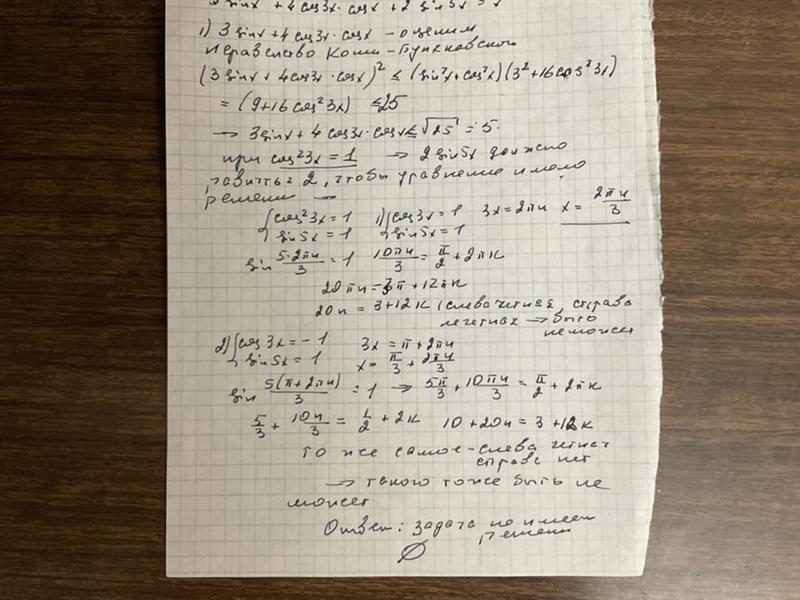 3 sinx + 4 cos3x · cosx + 2 sin5x = 7
1) 3 sinx + 4 cos3x · cosx - оценим
неравенство Коши - Буняковского
(3 sinx + 4 cos3x · cosx)² ≤ (sin²x + cos²x)(3² + 16 cos² 3x)
= (9 + 16 cos² 3x) ≤ 25
→ 3 sinx + 4 cos3x · cosx ≤ √25 = 5
при cos² 3x = 1 → 2 sin5x должно
равнять 2, чтобы уравнение имело
решени —
{cos² 3x = 1 1) {cos3x = 1 3x = 2πn x = 2πn/3
{sin5x = 1 {sin5x = 1
sin 5·2πn/3 = 1 10πn/3 = π/2 + 2πk
20πn = 3π + 12πk
20n = 3 + 12k (слева четная, справа
нечетная → быть
не может
2) {cos 3x = -1 3x = π + 2πn
{sin5x = 1 x = π/3 + 2πn/3
sin 5(π + 2πn)/3 = 1 → 5π/3 + 10πn/3 = π/2 + 2πk
5/3 + 10n/3 = 1/2 + 2k 10 + 20n = 3 + 12k
то же самое - слева четная
справа нет
→ такого тоже быть не
может
Ответ: задача не имеет
решени
∅